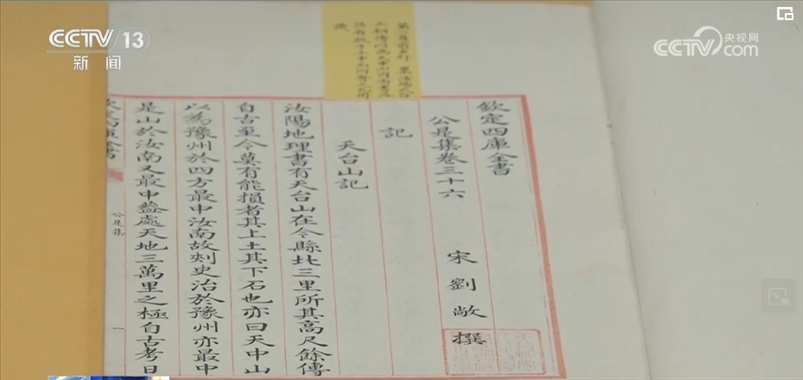 CCTV 13
新闻
央视网
CCTV.com
欽定四庫全書
公是集卷三十六
宋 劉敞 撰
記
天台山記
汝陽地理書有天台山在今縣北三里所其高尺餘傳
自古至今莫有能損者其上土其下石也亦曰天中山
以為豫州於四方最中汝南故刺史治於豫州亦最中
是山於汝南又最中蓋處天地三萬里之極自古考日
公是集
一